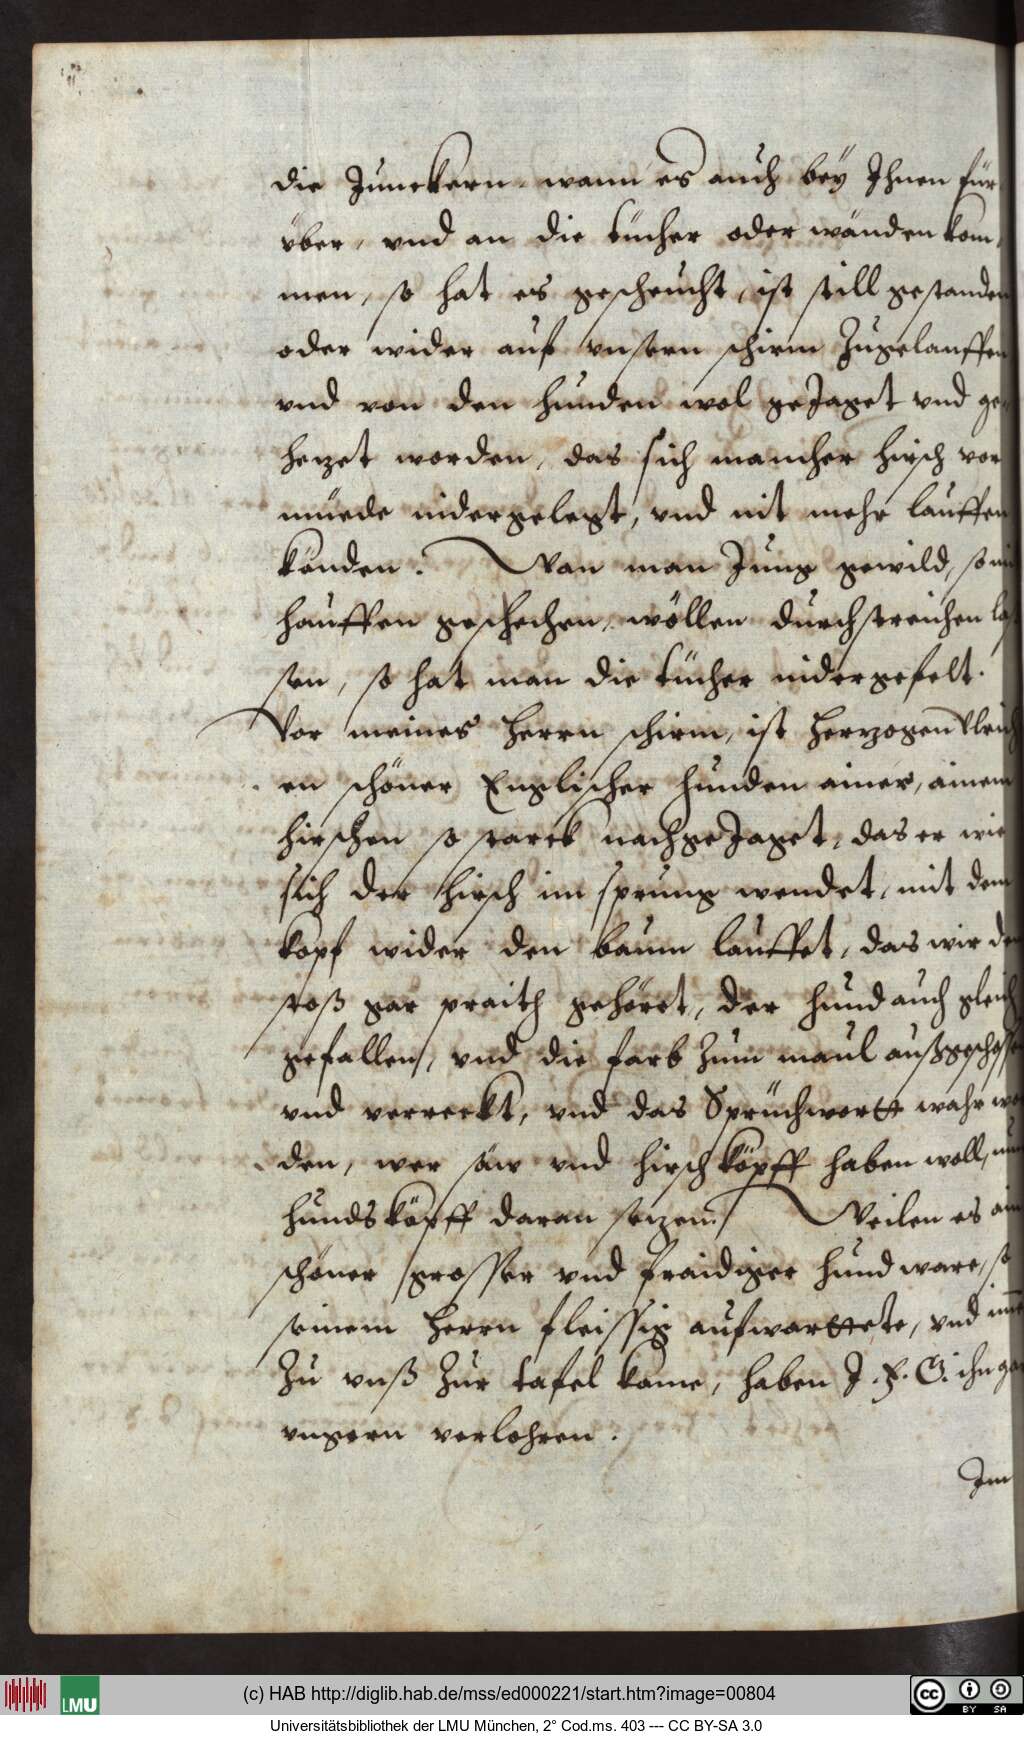 die Junckern. wann es auch beÿ Ihnen für
vber, vnd an die tücher oder wänden kom,
men, so hat es gescheucht, ist still gestanden
oder wider auf vnsern schirm Zugelauffen
vnd von den hunden wol geJaget vnd ge,
hezet worden, das sich mancher hirsch vor
müede nidergelegt, vnd nit mehr lauffen
könden. Wan man Jung gewild, so
hauffen geschehen, wöllen durchstreichen
sen, so hat man die tücher nidergefelt.
Vor meines herrn schirm, ist herzogen Vlrich
en schöner Englischer hunden ainer, ainem
hirschen so starck nachgeJaget, das er wie
sich der hirsch im sprung wendet, mit dem
kopf wider den baum lauffet, das wir den
stoß gar praith gehöret, der hund auch gleich
gefallen, vnd die farb zum maul außgeschossen
vnd verreckt, vnd das Sprüchwortt wahr wor
den, wer säw vnd hirsch köpff haben woll, mus
hunds köpff daran sezen. Weilen es ain
schöner grosser vnd fraidiger hund ware, so
seinem herrn fleissig aufwarttete, vnd
Zu vnß Zur tafel kame, haben J. F. G. ihn gar
vngern verlohren.
Im
(c) HAB http://diglib.hab.de/mss/ed000221/start.htm?image=00804
LMU
cc BY SA
Universitätsbibliothek der LMU München, 2° Cod.ms. 403 --- CC BY-SA 3.0